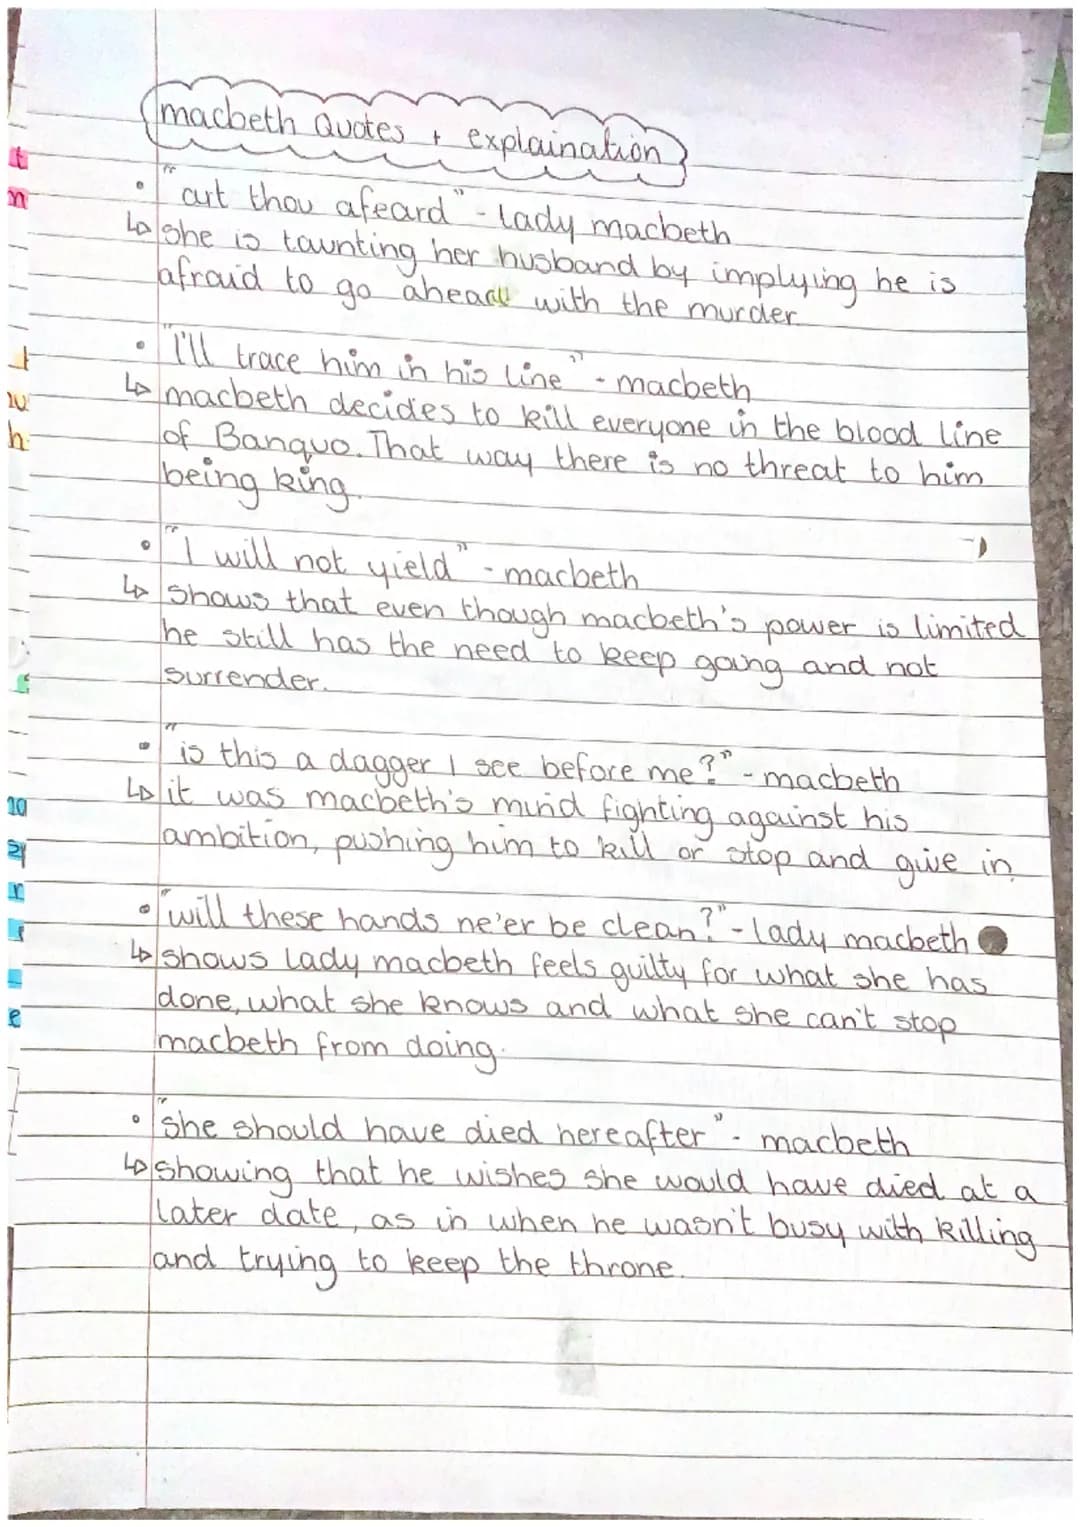 macbeth Quotes + explaination
• "art thou afeard" - lady macbeth
↳ she is taunting her husband by implying he is
afraid to go ahead with the murder
• "I'll trace him in his line" - macbeth
↳ macbeth decides to kill everyone in the blood line
of Banquo. That way there is no threat to him
being king.
• "I will not yield" - macbeth
↳ shows that even though macbeth's power is limited
he still has the need to keep going and not
surrender.
• "is this a dagger I see before me?" - macbeth
↳ it was macbeth's mind fighting against his
ambition, pushing him to kill or stop and give in.
• "will these hands ne'er be clean?" - lady macbeth
↳ shows lady macbeth feels guilty for what she has
done, what she knows and what she can't stop
macbeth from doing.
• "she should have died hereafter" - macbeth
↳ showing that he wishes she would have died at a
later date, as in when he wasn't busy with killing
and trying to keep the throne.